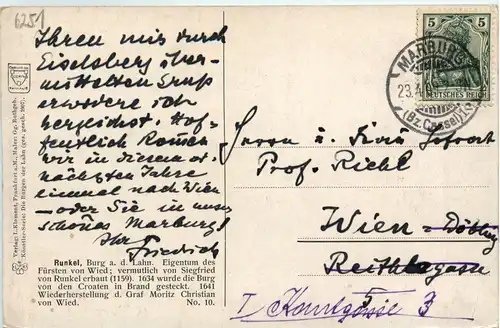 6251
Ihren mir durch
Eiselsberg über-
mittelten Gruß
erwidere ich
herzlichst. Hof-
fentlich kommen
wir in diesem od.
nächsten Jahre
einmal nach Wien
— oder Sie in unser
schönes Marburg!
Ihr
Friedrich
Runkel, Burg a. d. Lahn. Eigentum des
Fürsten von Wied; vermutlich von Siegfried
von Runkel erbaut (1159). 1634 wurde die Burg
von den Croaten in Brand gesteckt. 1641
Wiederherstellung d. Graf Moritz Christian
von Wied. No. 10.
Verlag L. Klement, Frankfurt a. M., Maler:
Künstler-Serie: Die Burgen der Lahn (ges. gesch. 1907)
5 5
DEUTSCHES REICH
MARBURG
23.4
(Bz. Cassel) 1
Herrn u. Frau Hofrat
Prof. Riehl
Wien - Döbling
I
3